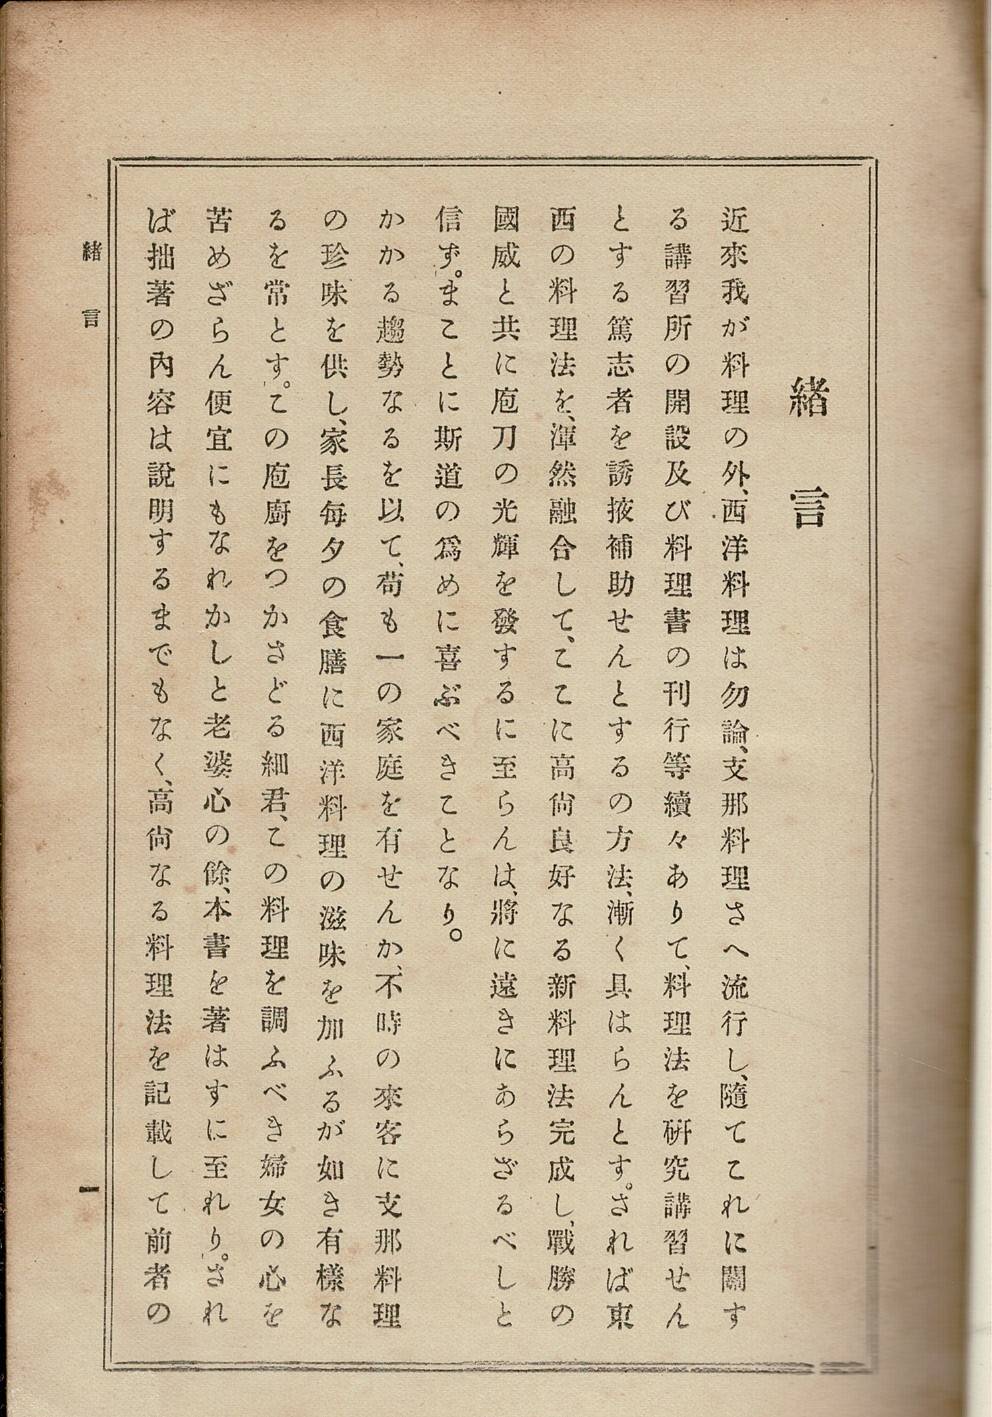 緒言
近來我が料理の外、西洋料理は勿論、支那料理さへ流行し、隨てこれに關す
る講習所の開設及び料理書の刊行等續々ありて、料理法を硏究講習せん
とする篤志者を誘掖補助せんとするの方法、漸く具はらんとす。されば東
西の料理法を、渾然融合して、ここに高尙良好なる新料理法完成し、戰勝の
國威と共に庖刀の光輝を發するに至らんは、將に遠きにあらざるべしと
信ず。まことに斯道の爲めに喜ぶべきことなり。
かかる趨勢なるを以て、苟も一の家庭を有せんか、不時の來客に支那料理
の珍味を供し、家長每夕の食膳に西洋料理の滋味を加ふるが如き有樣な
るを常とす。この庖廚をつかさどる細君、この料理を調ふべき婦女の心を
苦めざらん便宜にもなれかしと老婆心の餘、本書を著はすに至れり。され
ば拙著の內容は說明するまでもなく、高尙なる料理法を記載して前者の
緒言
一